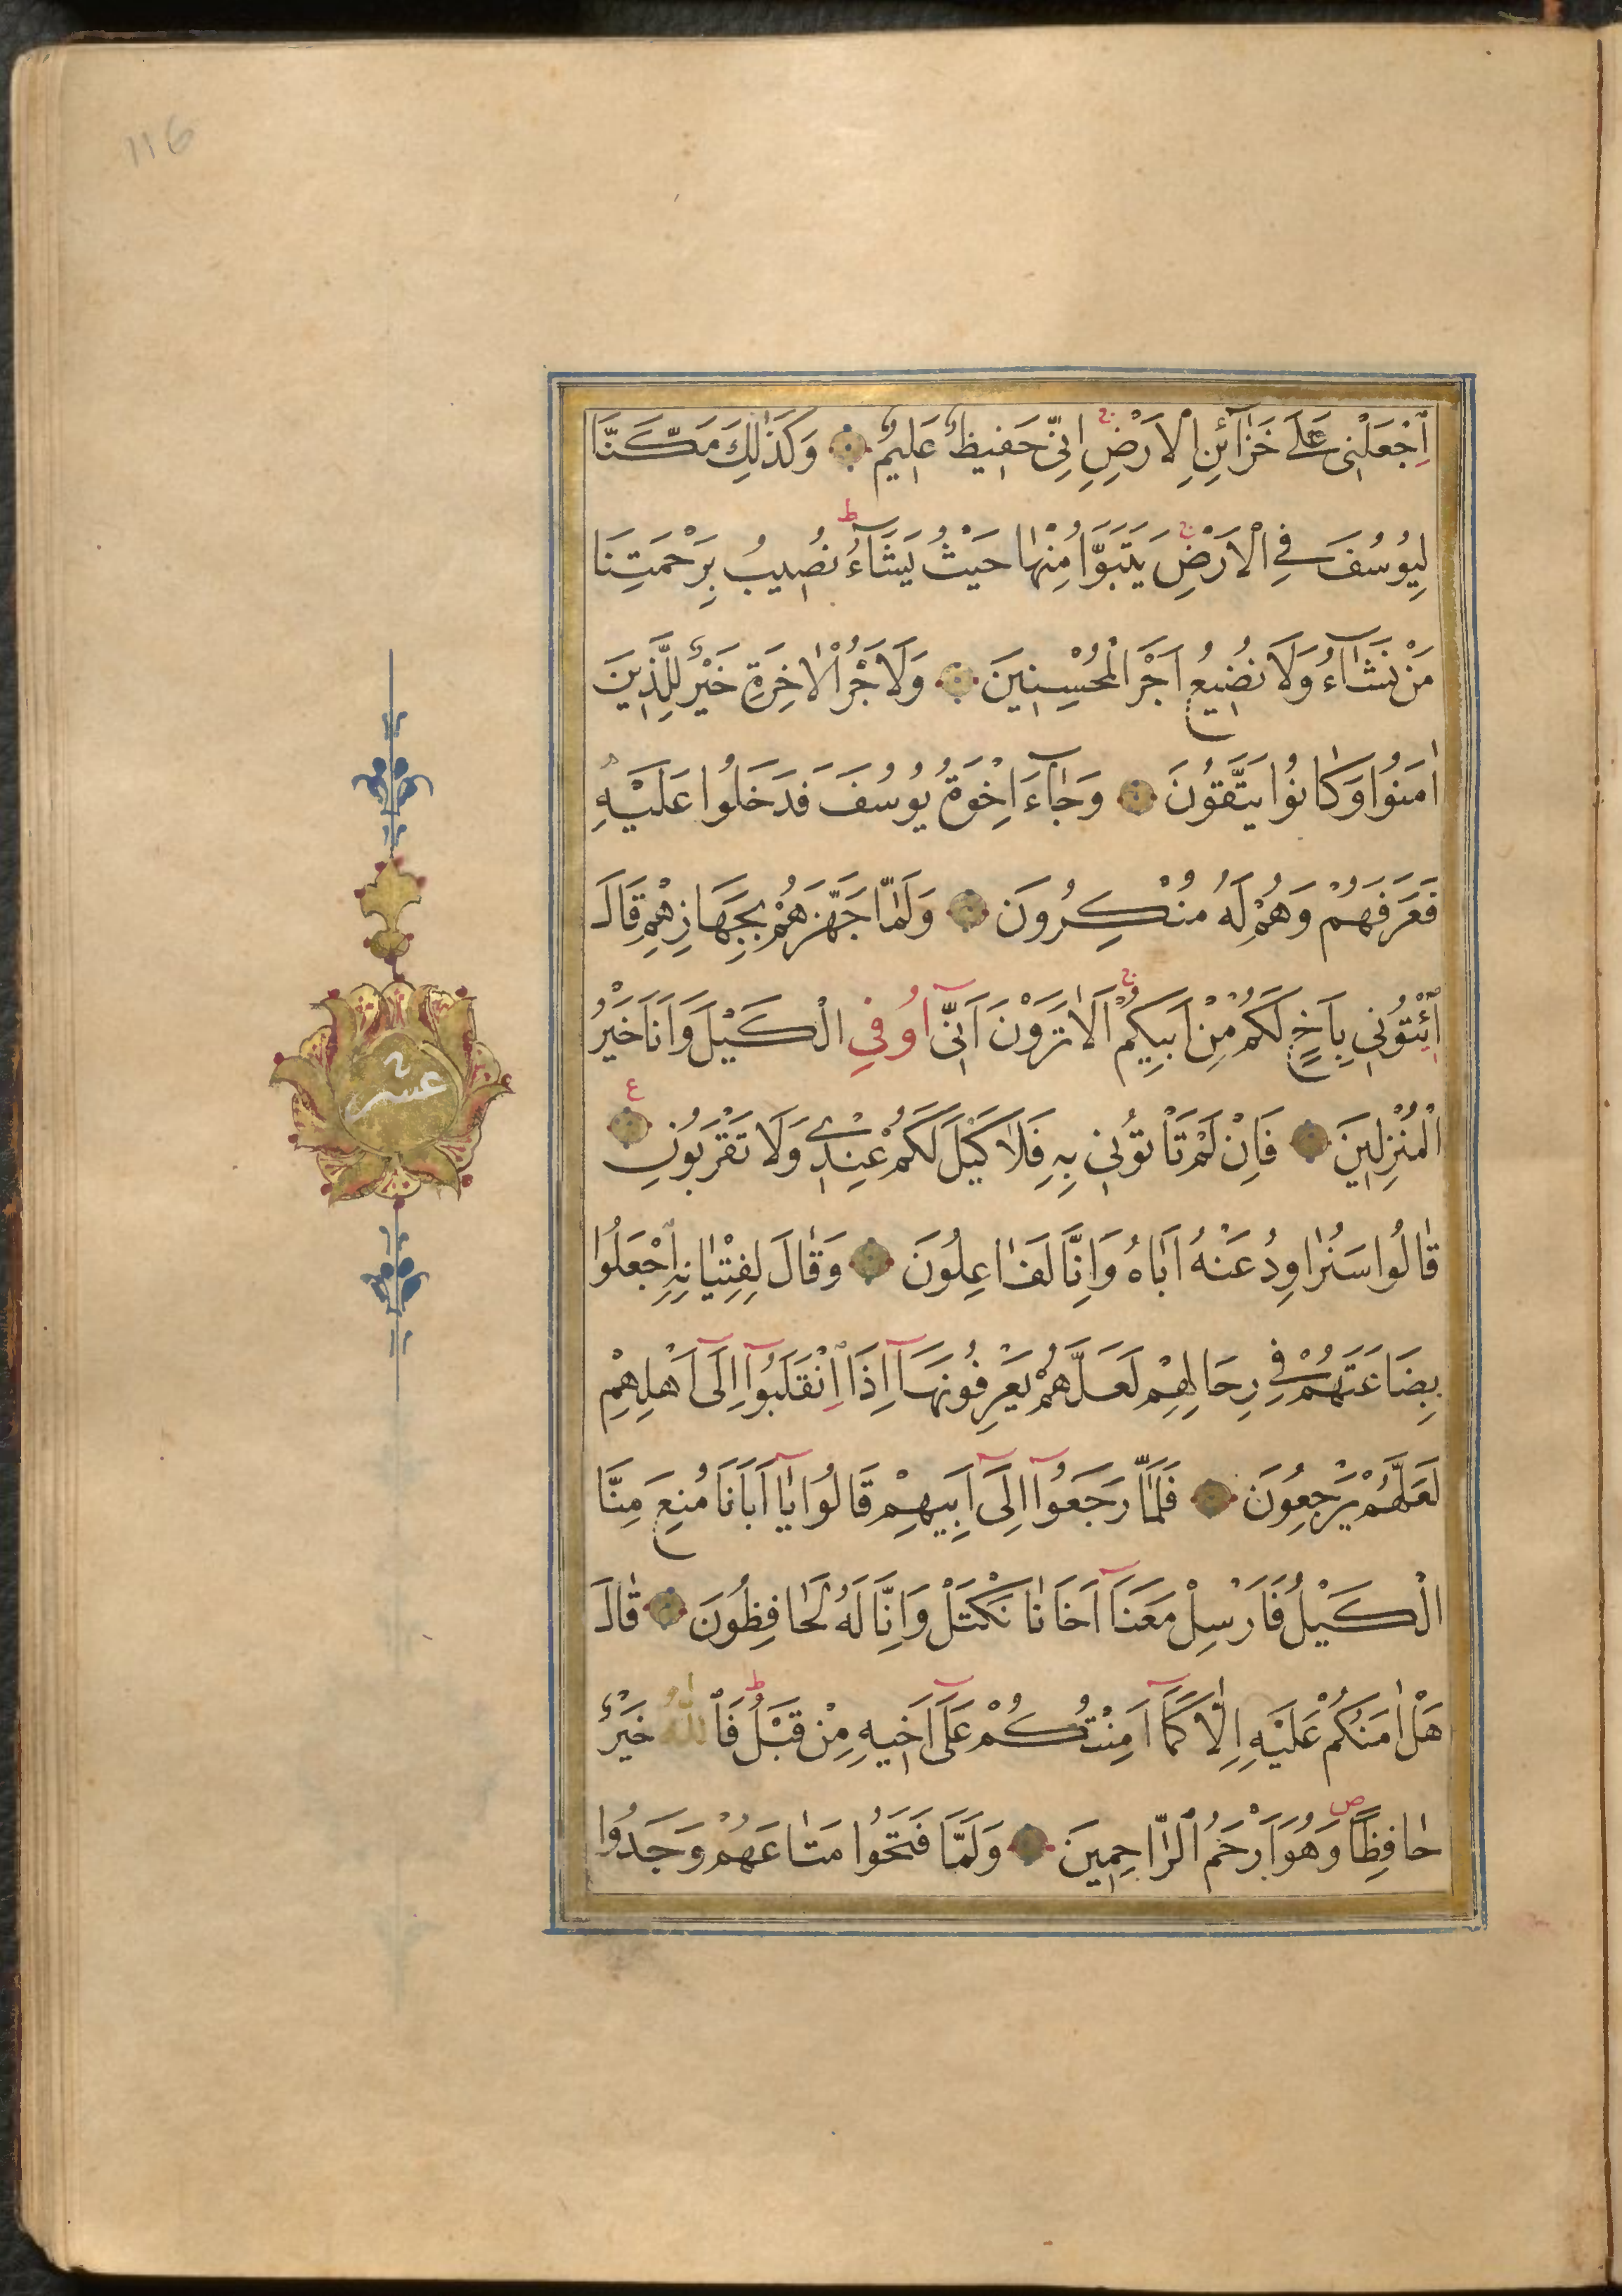 116
اِجْعَلْنِي عَلٰى خَزَآئِنِ الْاَرْضِ ج اِنِّي حَفِيظٌ عَلِيمٌ وَكَذٰلِكَ مَكَّنَّا
لِيُوسُفَ فِي الْاَرْضِ ج يَتَبَوَّاُ مِنْهَا حَيْثُ يَشَآءُ ط نُصِيبُ بِرَحْمَتِنَا
مَنْ نَشَآءُ وَلَا نُضِيعُ اَجْرَ الْمُحْسِنِينَ وَلَاَجْرُ الْاٰخِرَةِ خَيْرٌ لِلَّذِينَ
اٰمَنُوا وَكَانُوا يَتَّقُونَ وَجَآءَ اِخْوَةُ يُوسُفَ فَدَخَلُوا عَلَيْهِ
فَعَرَفَهُمْ وَهُمْ لَهُ مُنْكِرُونَ وَلَمَّا جَهَّزَهُمْ بِجَهَازِهِمْ قَالَ
ائْتُونِي بِاَخٍ لَكُمْ مِنْ اَبِيكُمْ ج اَلَا تَرَوْنَ اَنِّي اُوفِي الْكَيْلَ وَاَنَا خَيْرُ
الْمُنْزِلِينَ فَاِنْ لَمْ تَاْتُونِي بِهِ فَلَا كَيْلَ لَكُمْ عِنْدِي وَلَا تَقْرَبُونِ ع
قَالُوا سَنُرَاوِدُ عَنْهُ اَبَاهُ وَاِنَّا لَفَاعِلُونَ وَقَالَ لِفِتْيَانِهِ اجْعَلُوا
عشر
بِضَاعَتَهُمْ فِي رِحَالِهِمْ لَعَلَّهُمْ يَعْرِفُونَهَآ اِذَا انْقَلَبُوآ اِلٰٓى اَهْلِهِمْ
لَعَلَّهُمْ يَرْجِعُونَ فَلَمَّا رَجَعُوآ اِلٰٓى اَبِيهِمْ قَالُوا يَآ اَبَانَا مُنِعَ مِنَّا
الْكَيْلُ فَاَرْسِلْ مَعَنَآ اَخَانَا نَكْتَلْ وَاِنَّا لَهُ لَحَافِظُونَ قَالَ
هَلْ اٰمَنُكُمْ عَلَيْهِ اِلَّا كَمَآ اَمِنْتُكُمْ عَلٰٓى اَخِيهِ مِنْ قَبْلُ ط فَاللّٰهُ خَيْرٌ
حَافِظًا ص وَهُوَ اَرْحَمُ الرَّاحِمِينَ وَلَمَّا فَتَحُوا مَتَاعَهُمْ وَجَدُوا